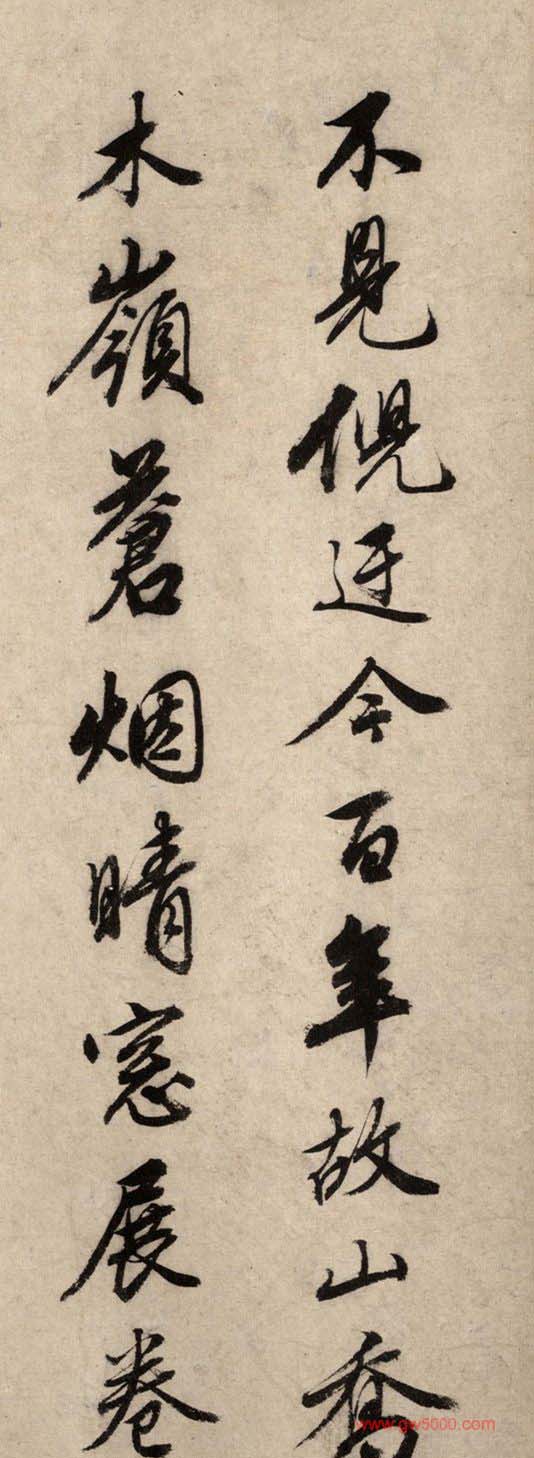 不見倪迂今百年故山喬
木嶺蒼烟晴窓展卷
www.gw5000.com